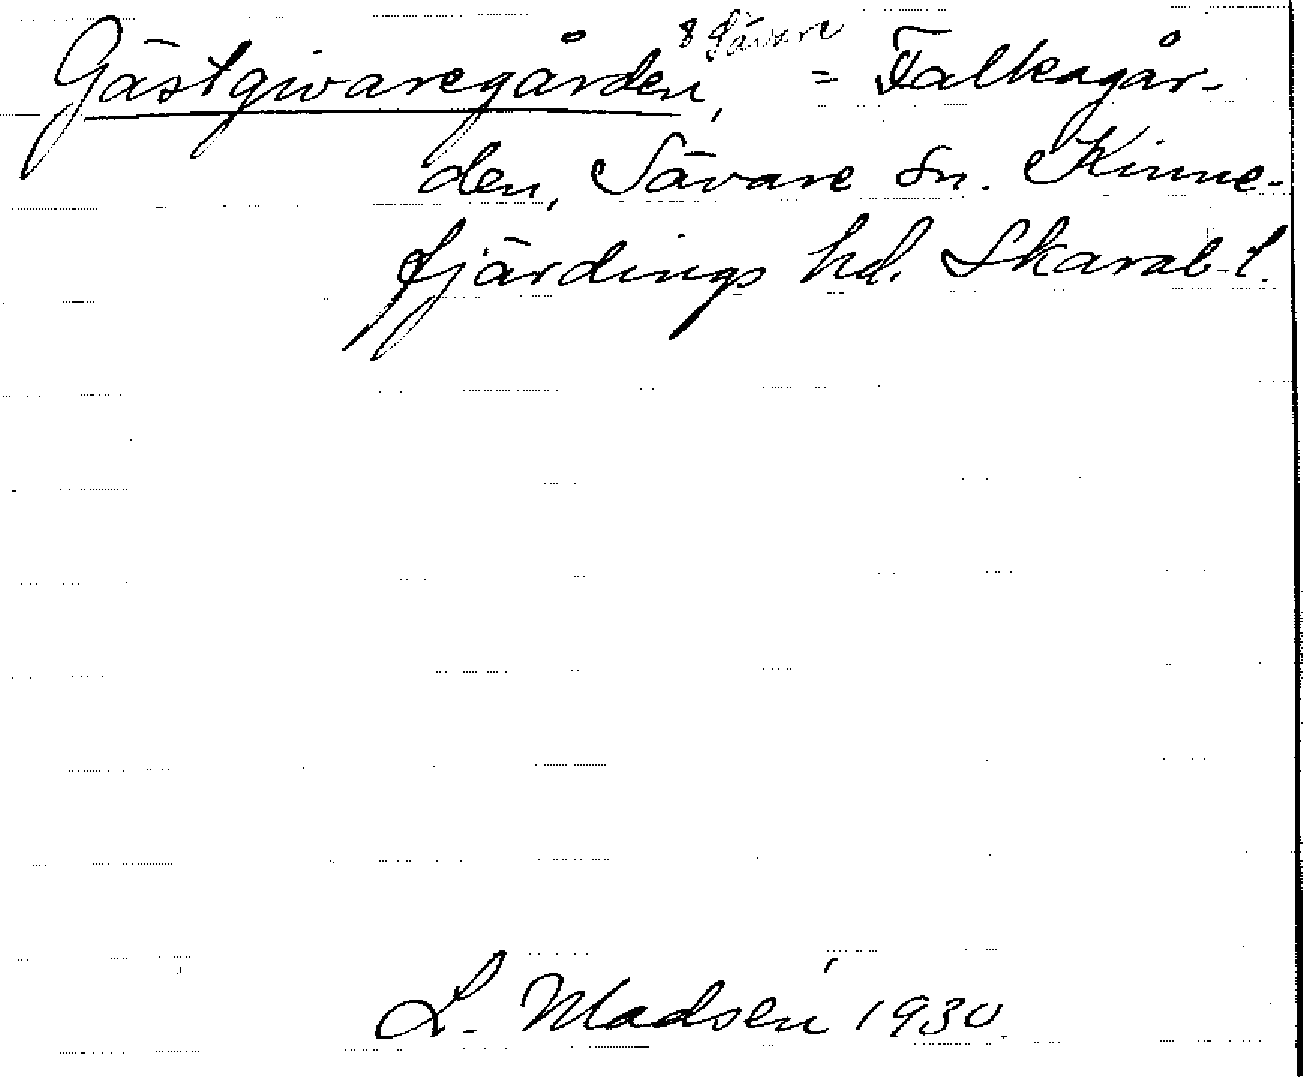 Gästgivaregården, 8 Sävare = Falkagår-
den, Sävare sn. Kinne-
fjärdings hd. Skarab. l.
L. Madsén 1930